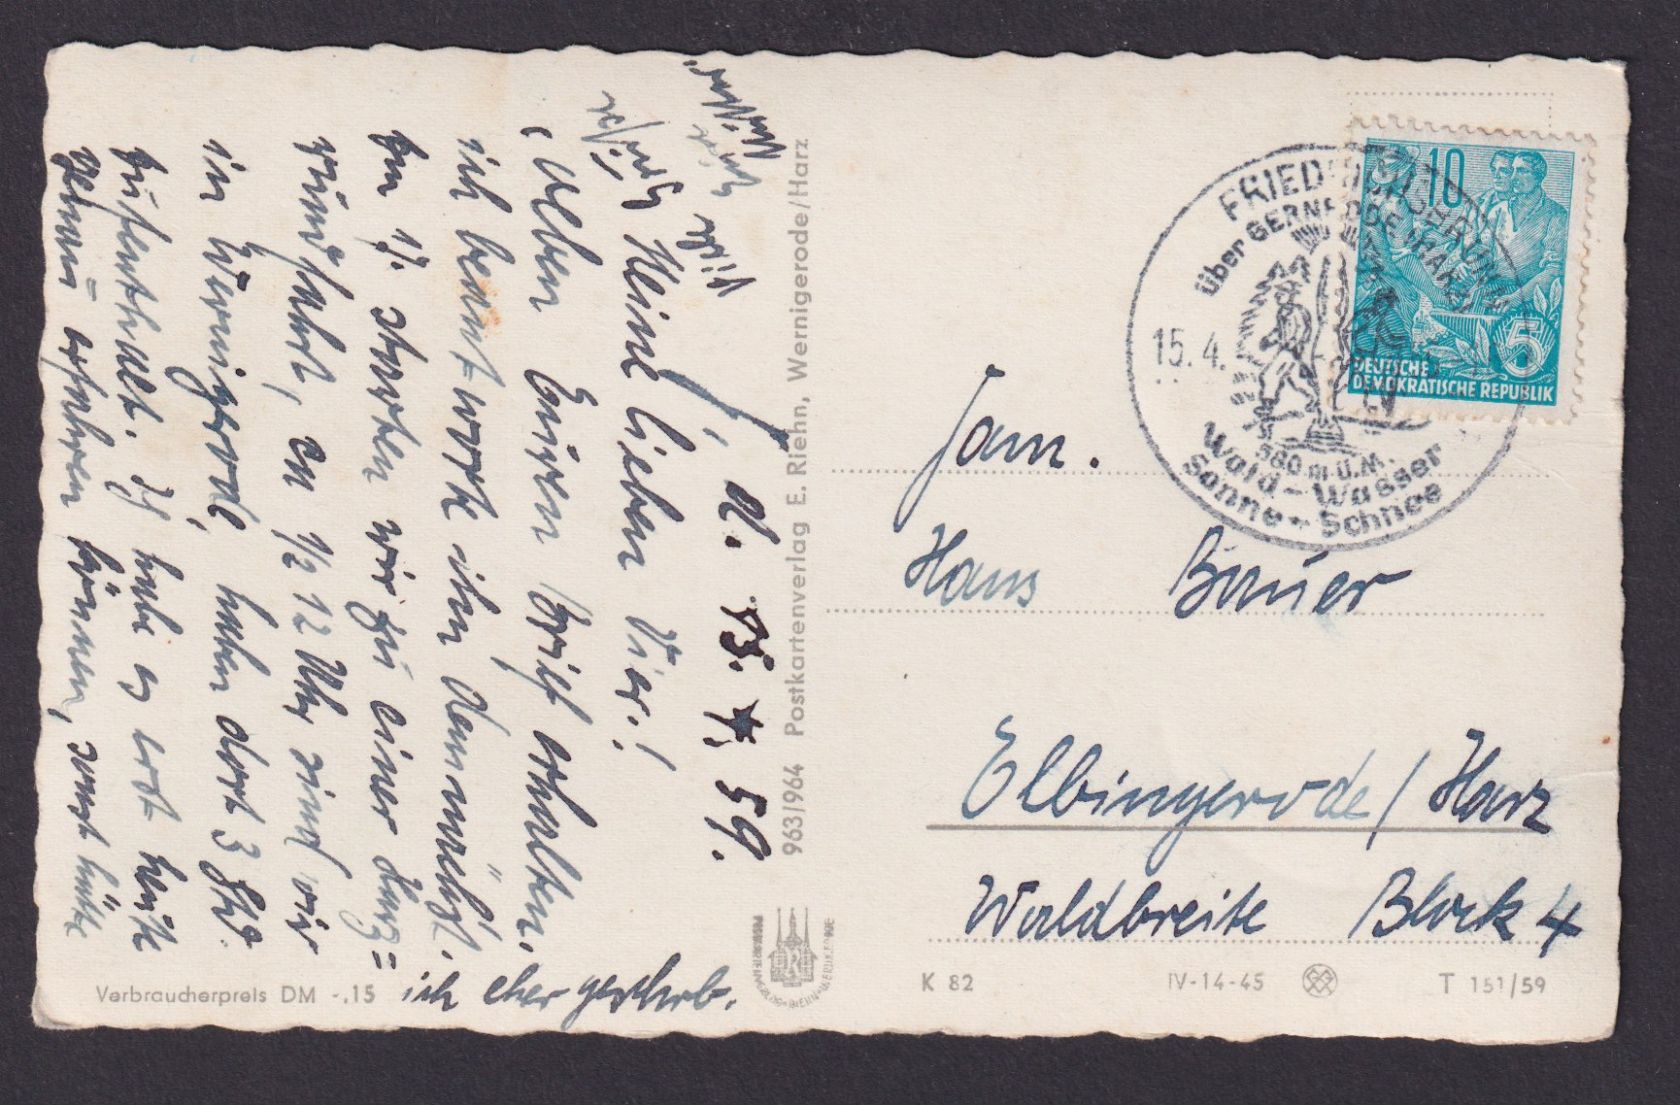 d. 15. 4. 59.
Meine lieben Vier!
Euren Brief erhalten,
ich beantworte ihn demnächst.
Am 17. starten wir zu einer Harz=
rundfahrt, an 1/2 12 Uhr sind wir
in Wernigerode, haben dort 3 Std.
Aufenthalt. Ich habe es erst heute
genau erfahren können, sonst hätte
ich eher geschrb.
Verbraucherpreis DM -.15
963/964 Postkartenverlag E. Riehn, Wernigerode/Harz
FRIEDRICHSBRUNN
über GERNRODE (HARZ)
15. 4.
580 m ü. M.
Wald - Wasser
Sonne - Schnee
10
5
DEUTSCHE
DEMOKRATISCHE REPUBLIK
Fam.
Hans Bauer
Elbingerode/Harz
Waldbreite Block 4
K 82 IV-14-45 T 151/59